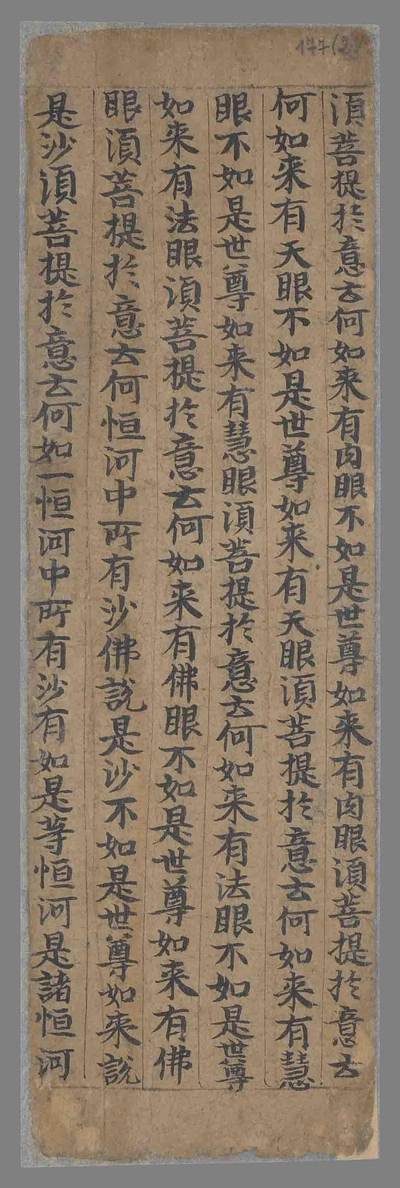 177(2)
湏菩提於意云何如来有肉眼不如是世尊如来有肉眼湏菩提於意云
何如来有天眼不如是世尊如来有天眼湏菩提於意云何如来有慧
眼不如是世尊如来有慧眼湏菩提於意云何如来有法眼不如是世尊
如来有法眼湏菩提於意云何如来有佛眼不如是世尊如来有佛
眼湏菩提於意云何恒河中所有沙佛說是沙不如是世尊如来說
是沙湏菩提於意云何如一恒河中所有沙有如是等恒河是諸恒河